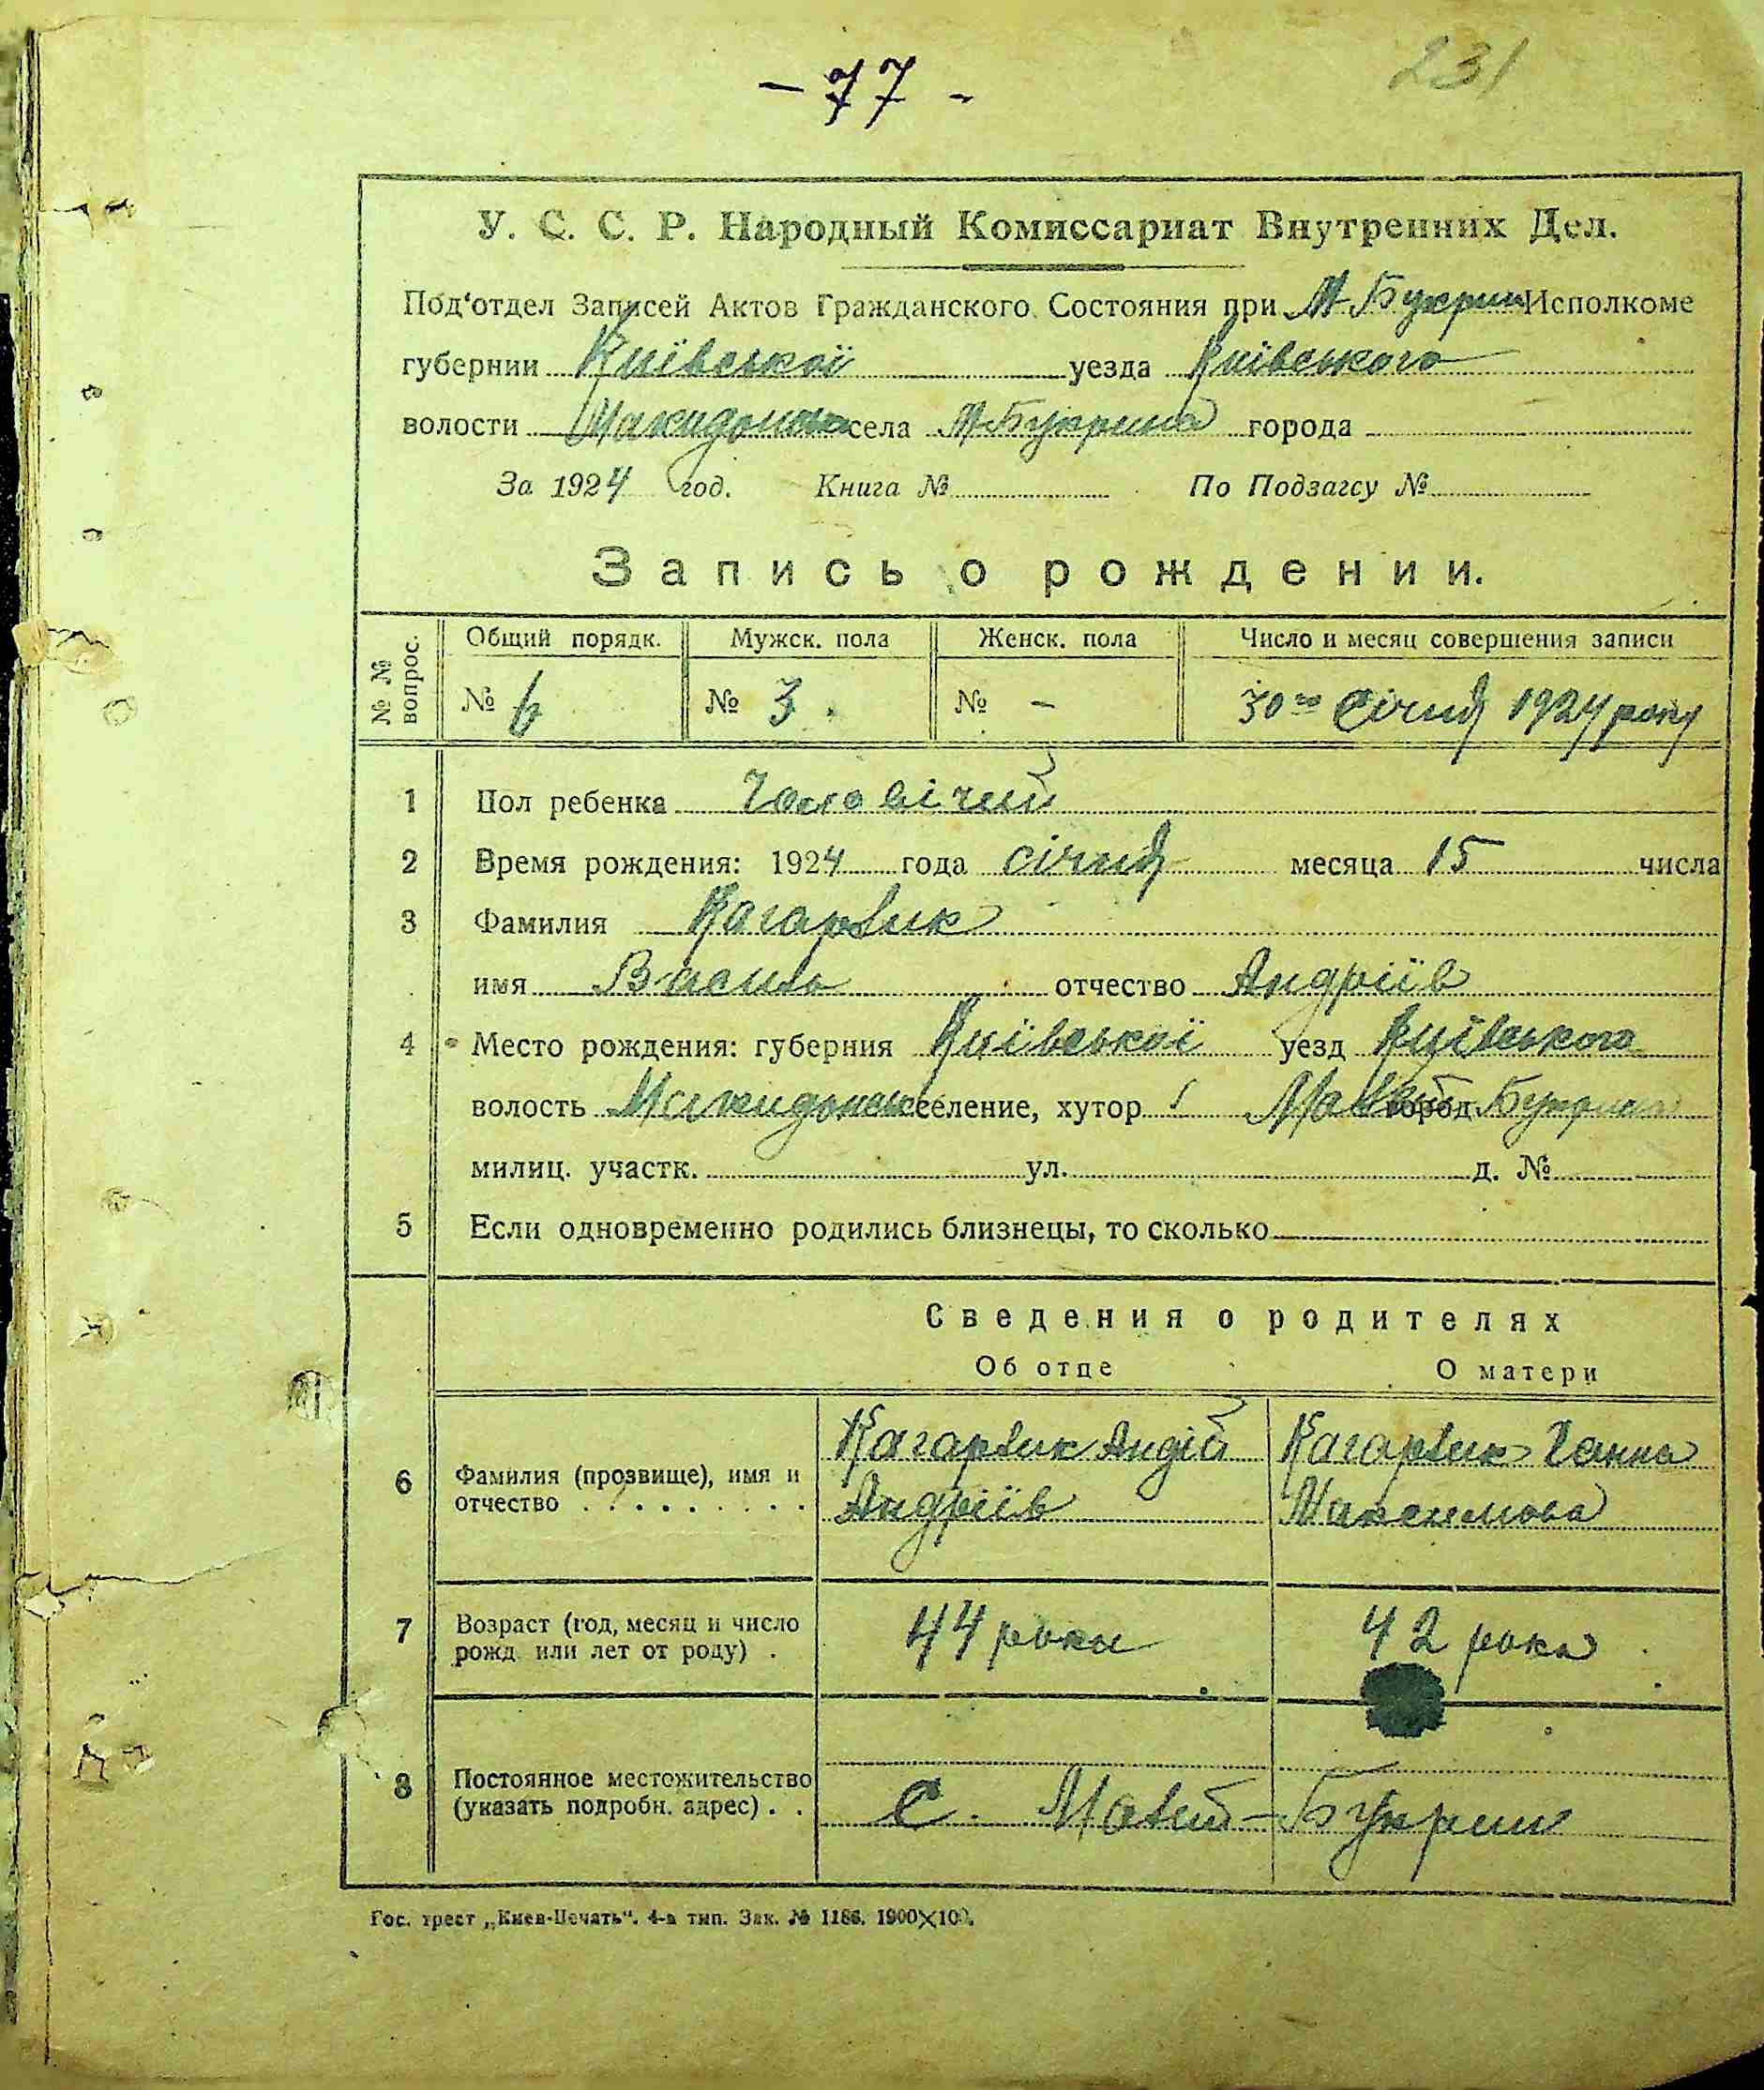 - 77 -
231
У. С. С. Р. Народный Комиссариат Внутренних Дел.
Под‘отдел Записей Актов Гражданского Состояния при М-Букрин Исполкоме
губернии Київської уезда Київського
волости Македонськ села М-Букрина города
За 1924 год. Книга № По Подзагсу №
Запись о рождении.
№ № вопрос. Общий порядк. Мужск. пола Женск. пола Число и месяц совершения записи
№ 6 № 3. № - 30го Січня 1924 року
1 Пол ребенка Чоловічий
2 Время рождения: 1924 года січня месяца 15 числа
3 Фамилия Кагарлик
имя Василь отчество Андріїв
4 Место рождения: губерния Київської уезд Київського
волость Македонськ селение, хутор Малий город Букрин
милиц. участк. ул. д. №
5 Если одновременно родились близнецы, то сколько
Сведения о родителях
Об отце О матери
Кагарлик Андій Кагарлик Ганна
6 Фамилия (прозвище), имя и
отчество Андріїв Максимова
7 Возраст (год, месяц и число
рожд. или лет от роду) . 44 роки 42 роки
8 Постоянное местожительство
(указать подробн. адрес) . . с. Малий-Букрин
Гос. трест „Киев-Печать“. 4-а тип. Зак. № 1186. 1900×100.